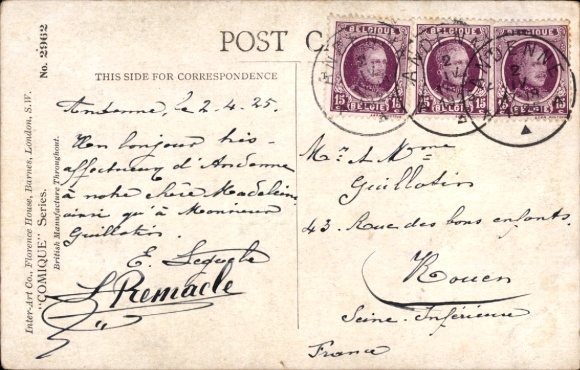 No. 2962
"COMIQUE" Series.
Inter-Art Co., Florence House, Barnes, London, S.W.
British Manufacture Throughout.
POST CA
THIS SIDE FOR CORRESPONDENCE
BELGIQUE
15 BELGIË 15
BELGIQUE
15 BELGIË 15
BELGIQUE
15 BELGIË 15
ANDENNE
Andenne, le 2.4.25.
Un bonjour très
affectueux d'Andenne
à notre chère Madeleine
ainsi qu'à Monsieur
Guillotin.
E.
L Remacle
Mr & Mme
Guillotin
43. Rue des bons enfants.
Rouen
Seine-Inférieure
France